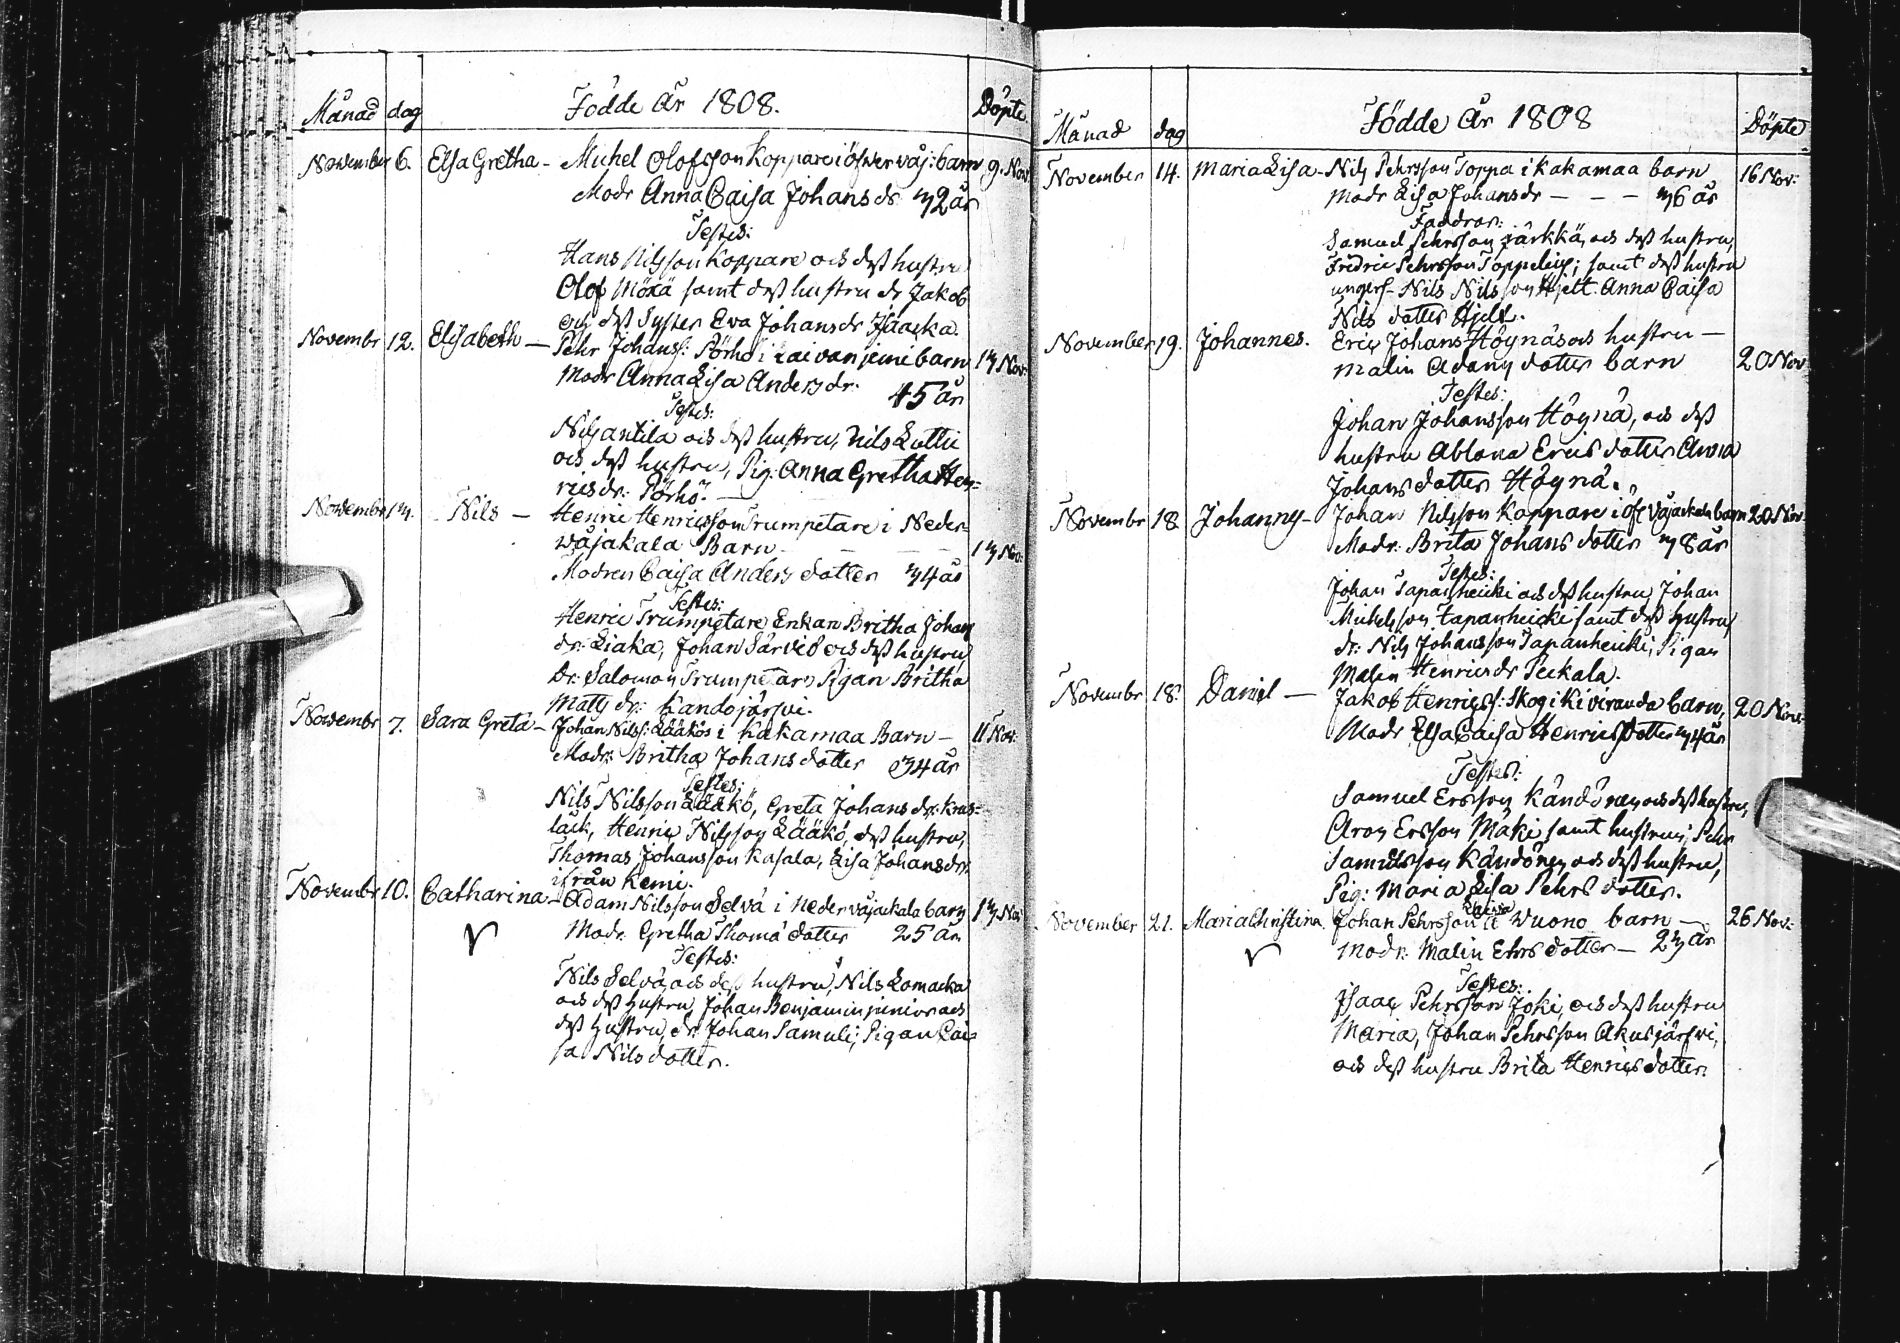 Månad dag Födde År 1808. Döpte
November 6. Elsa Gretha - Michel Olofsson Koppare i öfver väj: barn 9. Nov.
Modr Anna Caisa Johans dr 32 år
Testes:
Hans Nilsson Koppare och dess hustru
Olof Möxä samt dess hustru dr Jakob
och dess Syster Eva Johans dr Isaacka.
Novembr 12. Elisabeth — Pehr Johanss: Pörhö i Laivaniemi barn 13 Nov:
Modr Anna Lisa Anders dr. 45 år
Testes:
Nils antila och dess hustru, Nils Luttu
och dess hustru, Pig: Anna Gretha Hen=
rics dr: Pörhö. —
November 13. Nils — Henric Henricsson Trumpetare i Neder
wäjakala Barn — 13 Nov:
Modren Caisa Anders dotter 34 år
Testes:
Henric Trumpetare Enkan Britha Johans
dr: Liaka, Johan Särviö och dess hustru
Dr: Salomon Trumpetare Pigan Britha
Matts dr: Kandojärfvi.
Novembr 7. Sara Greta - Johan Nilss: Lääkös i Kakamaa Barn — 11 Nov:
Modr: Britha Johans dotter 34 år
Testes:
Nils Nilsson Lääkö, Greta Johans dr: Kras=
lack, Henric Nilsson Lääkö, dess hustru,
Thomas Johansson Kasala, Lisa Johans dr:
ifrån Kemi.
Novembr 10. Catharina - Adam Nilsson Selvä i Neder väjackala barn 13 Nov
Modr. Gretha Thoma dotter 25 år
Testes:
Nils Selvä, och dess hustru, Nils Lomacka
och dess Hustru, Johan Benjamin junior och
dess Hustru, dr: Johan Samuli; Pigan Cai=
sa Nils dotter.
Månad dag Födde År 1808 Döpte
November 14. Maria Lisa - Nils Pehrsson Toppa i Kakamaa barn 16 Nov:
Modr Lisa Johans dr — — — 36 år
Faddrar:
Samuel Pehrsson Järkkä, och dess hustru,
Fredric Pehrsson Toppelius; samt dess hustru
ungers- Nils Nilsson Hjelt. Anna Caisa
Nils dotter Hjelt.
November 19. Johannes. Eric Johans Höynäs och hustru —
Malin Adams dotter barn 20 Nov
Testes:
Johan Johansson Höynä, och dess
hustru Ablona Erics dotter Anna
Johans dotter Höynä.
Novembr 18 Johannes - Johan Nilsson Koppare i öfr Väjackala barn 20 Nov.
Modr: Brita Johans dotter 38 år
Testes:
Johan Tapanheicki och dess hustru, Johan
Michelsson Tapanheicki samt dess Hustru,
dr: Nils Johansson Tapanheicki, Pigan
Malin Henrics dr Peckala.
Novembr 18. Daniel — Jakob Henricss: Skog i Kiviranda barn, 20 Nov:
Modr Elsa Caisa Henrics Dotter 34 år
Testes:
Samuel Ersson Kändönen och dess hustru,
Aron Ersson Mäki, samt hustrun; Pehr
Samuelsson Kändönen och dess hustru,
Pig: Maria Lisa Pehrs dotter.
November 21. Maria Christina. Johan Pehrsson Wuono barn — 26 Nov:
Modr: Malin Ehrs dotter — 23 år
Testes:
Isaac Pehrsson Joki, och dess hustru
Maria, Johan Pehrsson Akusjärfvi,
och dess hustru Brita Henrics dotter.